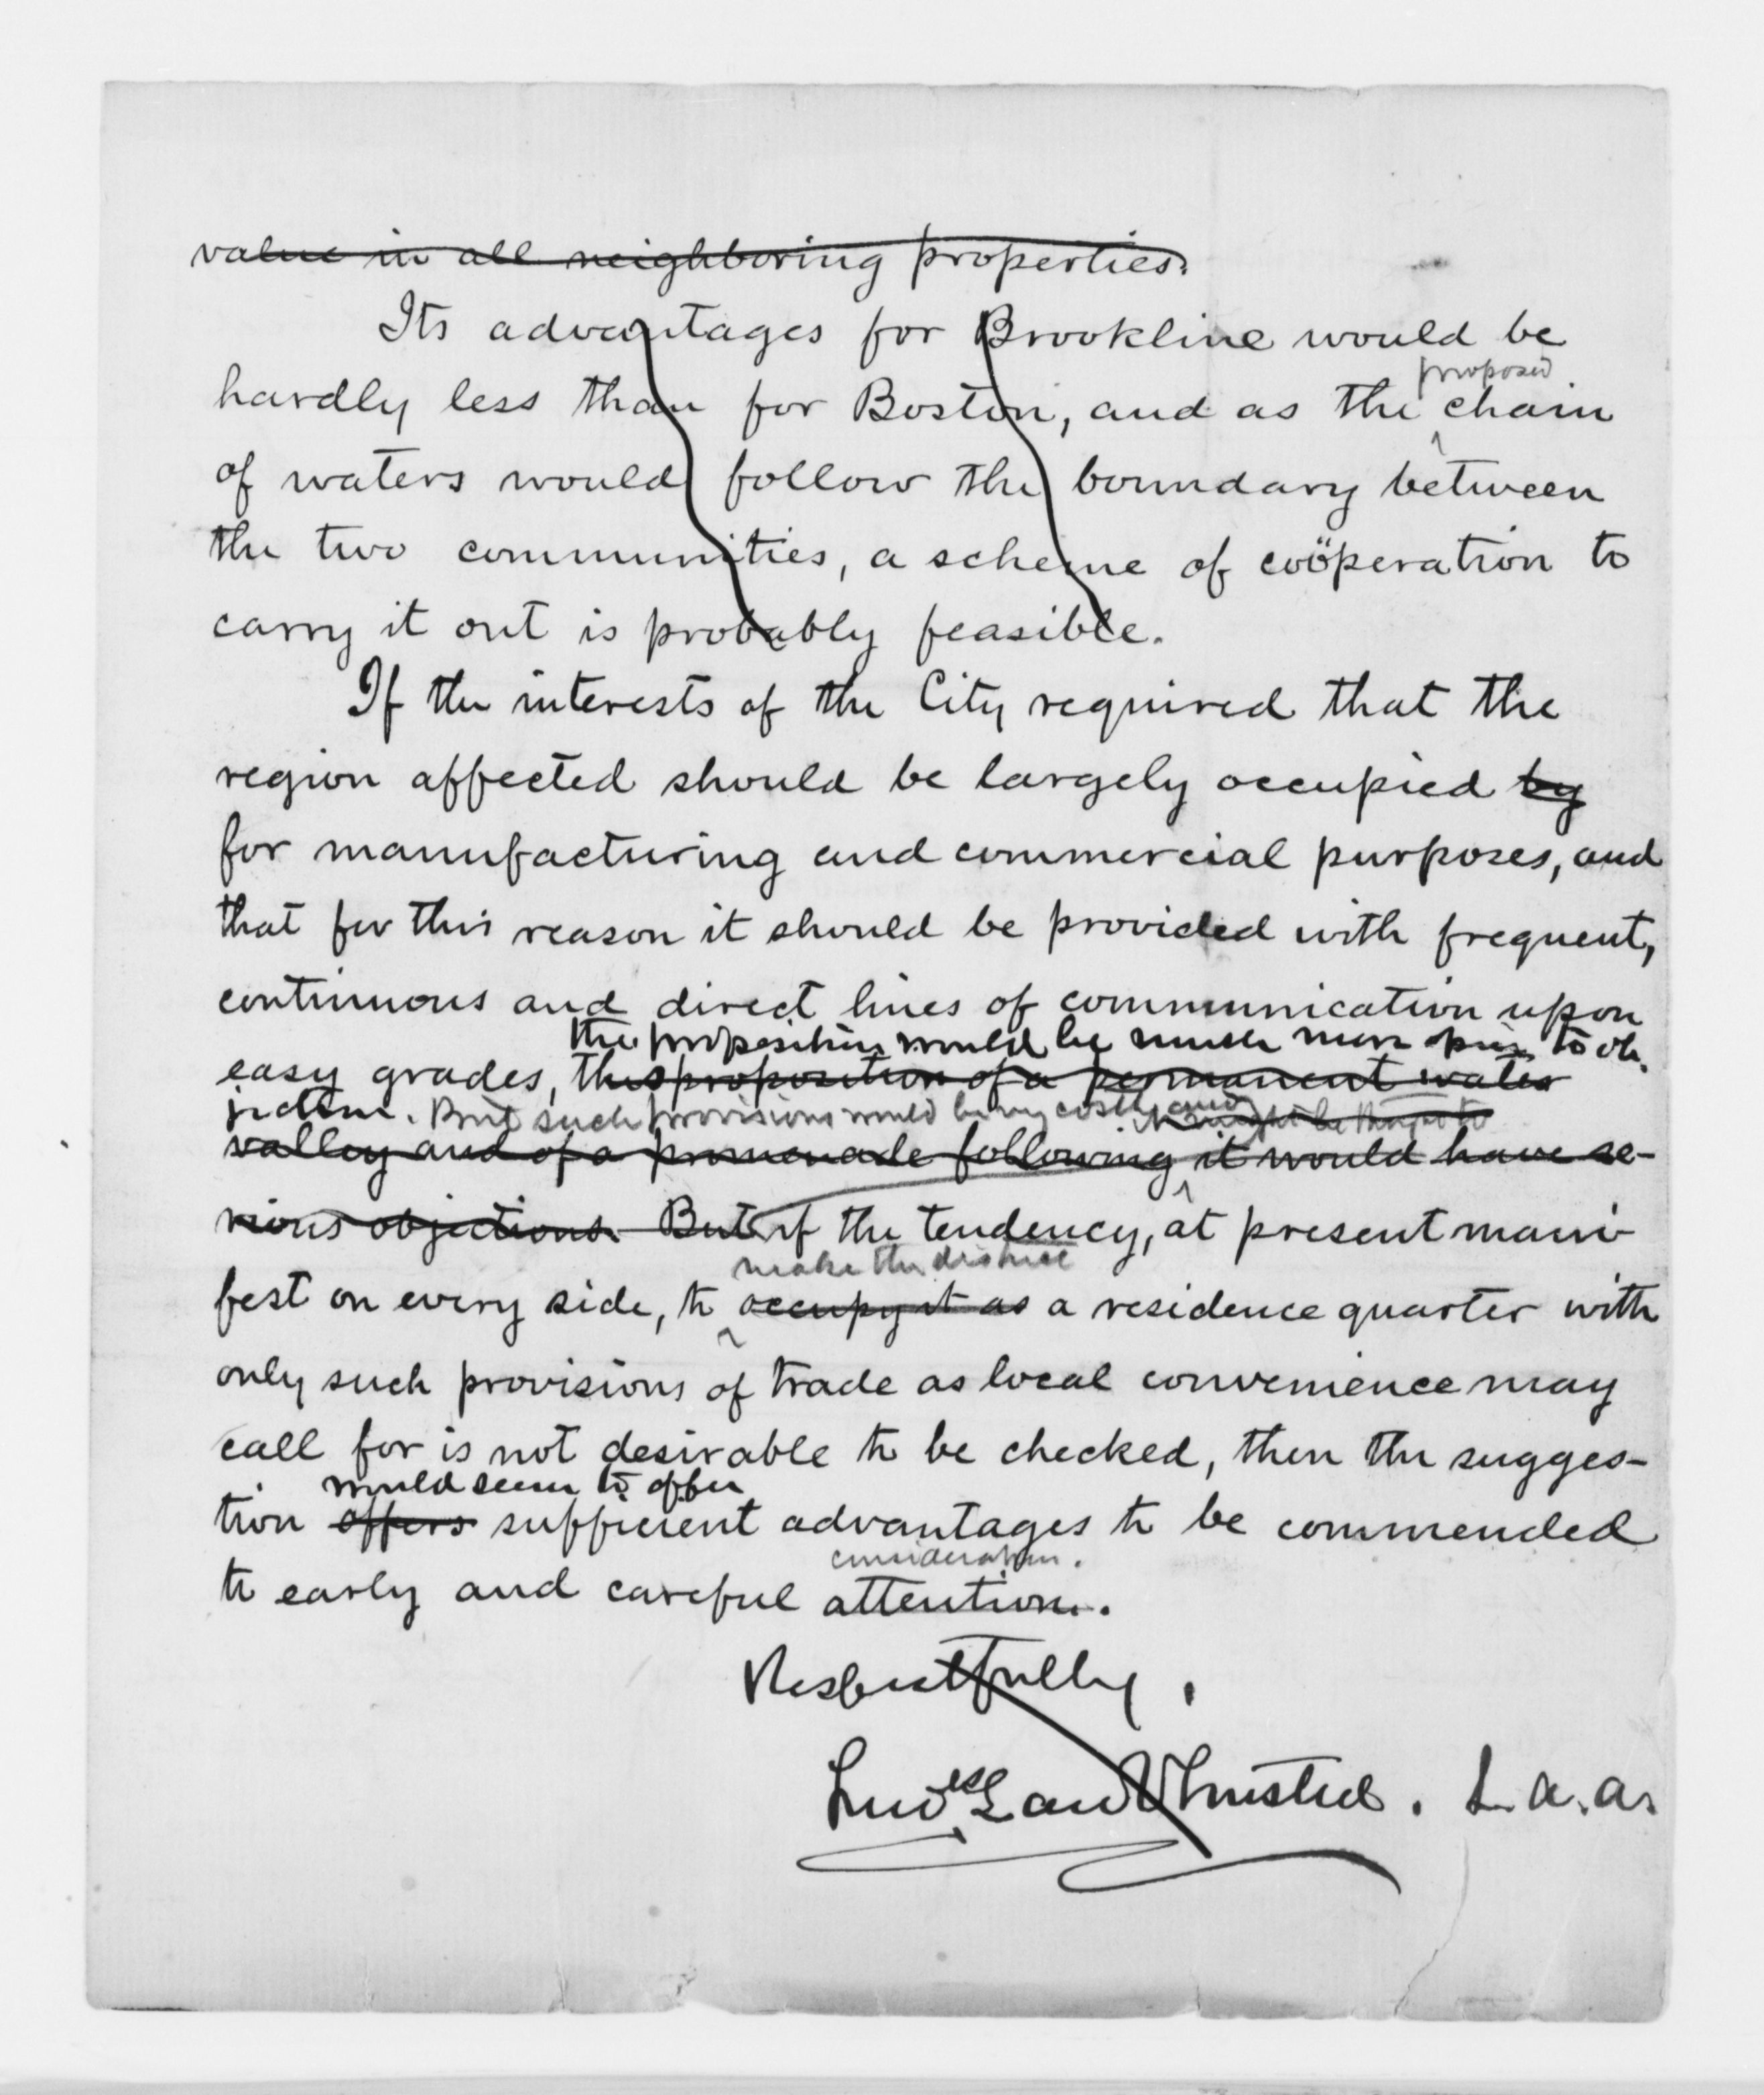 value in all neighboring properties.
Its advantages for Brookline would be
proposed
hardly less than for Boston, and as the chain
of waters would follow the boundary between
the two communities, a scheme of coöperation to
carry it out is probably feasible.
If the interests of the City required that the
region affected should be largely occupied by
for manufacturing and commercial purposes, and
that for this reason it should be provided with frequent,
continuous and direct lines of communication upon
the proposition would be much more open to ob-
easy grades, this proposition of a permanent water
jection. But such provisions would be very costly and it might be
valley and of a promenade following it would have se-
rious objections. But if the tendency, at present mani-
make the district
fest on every side, to occupy it as a residence quarter with
only such provisions of trade as local convenience may
call for is not desirable to be checked, then the sugges-
would seem to offer
tion offers sufficient advantages to be commended
consideration.
to early and careful attention.
Respectfully,
Fred Law Olmsted. L.A.A.